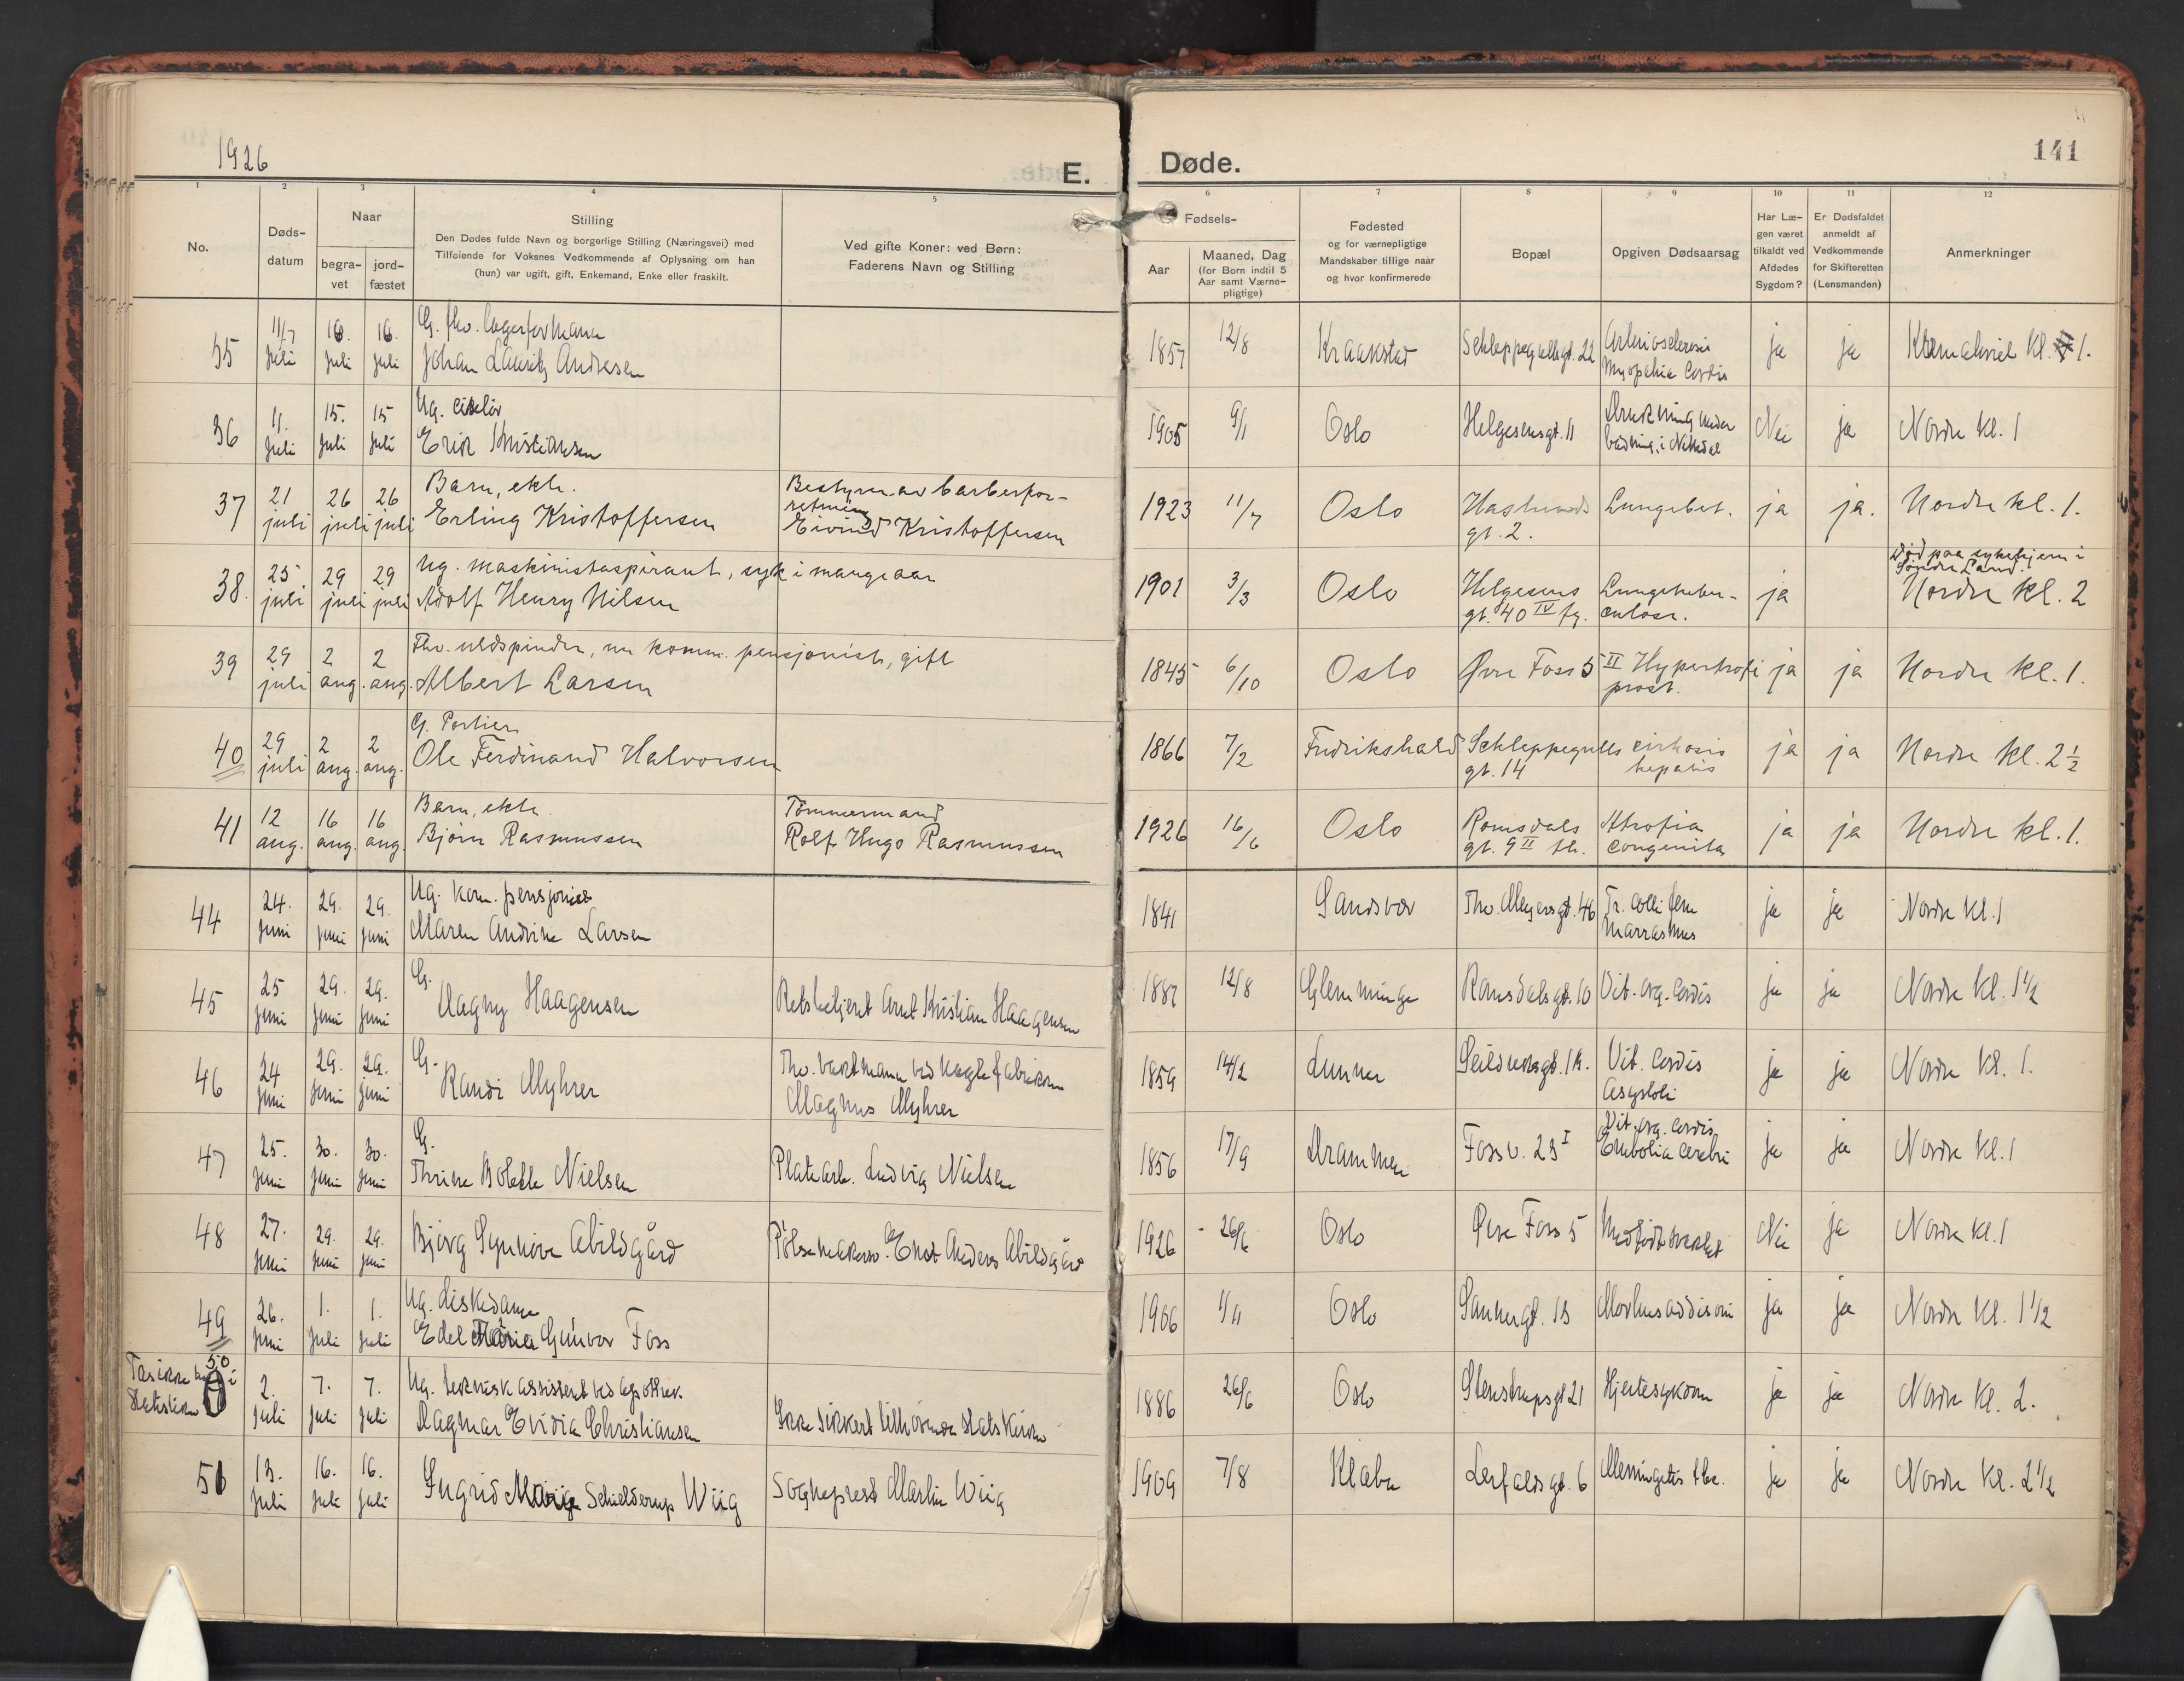 1926
E.
Døde.
141
1 2 3 4 5 6 7 8 9 10 11 12
No.
Døds-
datum
Naar
begra-
vet
jord-
fæstet
Stilling
Den Dødes fulde Navn og borgerlige Stilling (Næringsvei) med
Tilføiende for Voksnes Vedkommende af Oplysning om han
(hun) var ugift, gift, Enkemand, Enke eller fraskilt.
Ved gifte Koner: ved Børn:
Faderens Navn og Stilling
Fødsels-
Aar
Maaned, Dag
(for Børn indtil 5
Aar samt Værne-
pligtige)
Fødested
og for værnepligtige
Mandskaber tillige naar
og hvor konfirmerede
Bopæl
Opgiven Dødsaarsag
Har Læ-
gen været
tilkaldt ved
Afdødes
Sygdom?
Er Dødsfaldet
anmeldt af
Vedkommende
for Skifteretten
(Lensmanden)
Anmerkninger
35 11/7 juli 16. juli 16. juli G. fhv. lagerformann
Johan Lauritz Andresen
1857 12/8 Kraakstad Schleppegrellsgt. 22 Arteriosclerosis
Myopatia Cordis ja ja Krematoriet kl. 1.
36 11. juli 15. juli 15 juli Ug. ciselør
Erik Kristiansen
1905 9/1 Oslo Helgesensgt. 11 Drukning under
badning i Nittedal Nei ja Nordre kl. 1
37 21 juli 26 juli 26 juli Barn, ekte.
Erling Kristoffersen
Bestyrer av barberfor-
retning
Eivind Kristoffersen
1923 11/7 Oslo Haslunds
gt. 2. Lungebet. ja ja. Nordre kl. 1.
38. 25. juli 29 juli 29 juli Ug. maskinistaspirant, syk i mange aar
Adolf Henry Nilsen
1901 3/3 Oslo Helgesens
gt. 40 IV fg. Lungetuber-
culose. ja Død paa sykehjem i
Søndre Land.
Nordre kl. 2
39 29 juli 2 aug. 2 aug. Fhv. uldspinder, nu komm. pensjonist, gift
Albert Larsen
1845 6/10 Oslo Øvre Foss 5 II Hypertrofi
prost. ja ja Nordre kl. 1.
40 29 juli 2 aug. 2 aug. G. Portier
Ole Ferdinand Halvorsen
1866 7/2 Fredrikshald Schleppegrells
gt. 14 cirhosis
hepatis ja ja Nordre kl. 2 1/2
41 12 aug. 16 aug. 16 aug. Barn, ekte.
Bjørn Rasmussen
Tømmermand
Rolf Hugo Rasmussen
1926 16/6 Oslo Romsdals
gt. 9 II th. Atrofia
congenita ja ja Nordre kl. 1.
44 24. juni 29. juni 29. juni Ug. kom. pensjonist
Maren Andrine Larsen
1841 Sandsvær Thv. Meyersgt. 46 Fr. colli fem
Marrasmus ja ja Nordre kl. 1
45 25 juni 29. juni 29. juni G.
Dagny Haagensen
Retsbetjent Arnt Kristian Haagensen
1887 12/8 Glemminge Romsdalsgt. 10 Vit. org. cordis ja ja Nordre kl. 1 1/2
46 24 juni 29. juni 29. juni G.
Randi Myhrer
Fhv. vaktmann ved Naglefabrikken
Magnus Myhrer
1859 14/2 Lunner Seilduksgt. 14. Vit. Cordis
Asystoli ja ja Nordre kl. 1.
47 25. juni 30. juni 30. juni G.
Thrine Bolette Nielsen
Platearb. Ludvig Nielsen
1856 17/9 Drammen Fossv. 23 I Vit. org. cordis
Embolia cerebri ja ja Nordre kl. 1
48 27. juni 29. juni 29. juni Bjørg Synnøve Abildgård
Pølsemakersv. Ernst Anders Abildgård
1926 26/6 Oslo Øvre Foss 5 Medfødt svakhet Nei ja Nordre kl. 1
49 26. juni 1. juli 1. juli Ug. diskedame
Edel Maria Gunvor Foss
1906 1/11 Oslo Sannergt. 13 Morbus addisoni ja ja Nordre kl. 1 1/2
Tas ikke med i
Statistikken
50 2. juli 7. juli 7. juli Ug. teknisk assistent ved apothek.
Dagmar Evidia Christiansen
Ikke sikkert tilhørende Statskirken
1886 26/6 Oslo Stenstrupsgt 21 Hjertesykdom ja ja Nordre kl. 2.
51 13. juli 16. juli 16. juli Ingrid Marie Schielderup Wiig
Sogneprest Martin Wiig
1909 7/8 Klæbu Lerfaldsgt. 6 Meningitis tbc. ja ja Nordre kl. 2 1/2